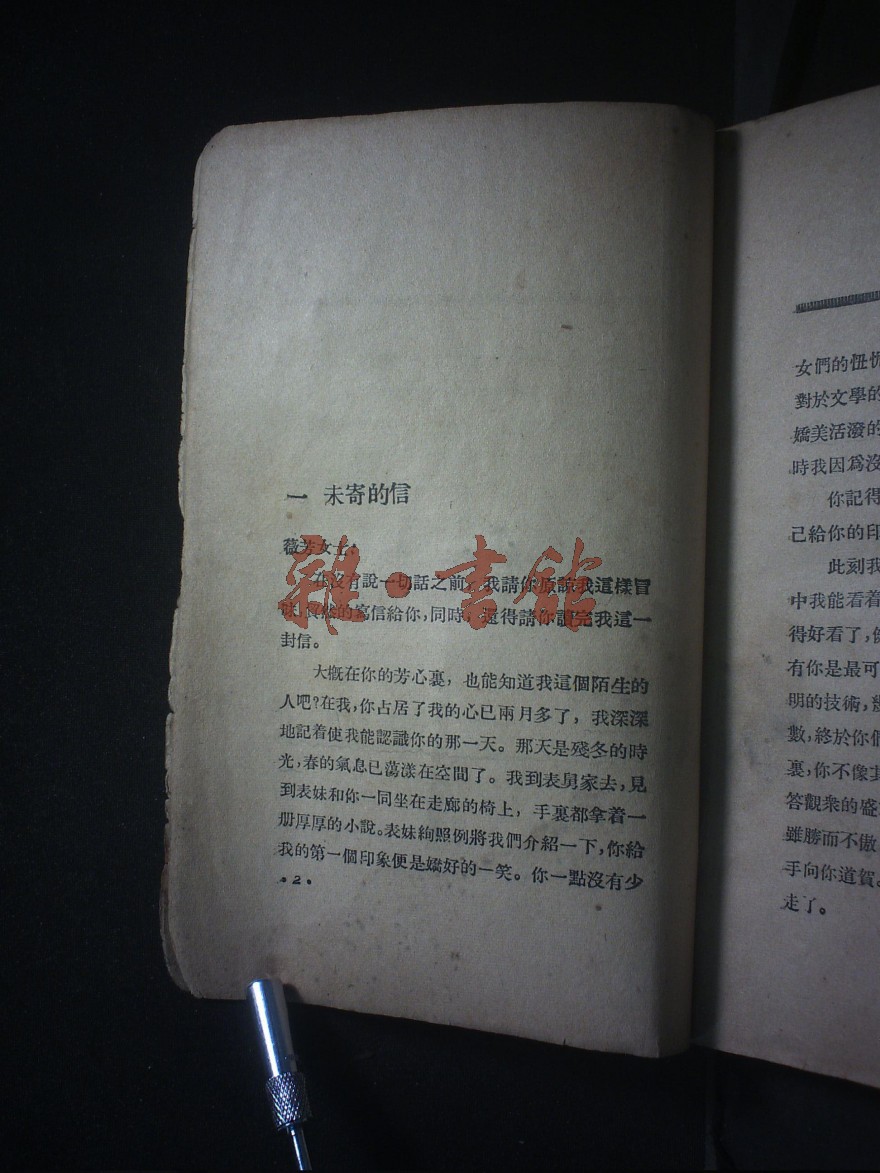 一　未寄的信
薇芳女士：
在沒有說一切話之前，我請你原諒我這樣冒
昧，貿然的寫信給你，同時，還得請你讀完我這一
封信。
大概在你的芳心裏，也能知道我這個陌生的
人吧？在我，你占居了我的心已兩月多了，我深深
地記着使我能認識你的那一天。那天是殘冬的時
光，春的氣息已蕩漾在空間了。我到表舅家去，見
到表妹和你一同坐在走廊的椅上，手裏都拿着一
册厚厚的小說。表妹絢照例將我們介紹一下，你給
我的第一個印象便是嬌好的一笑。你一點沒有少
·2·
雜·書館
女們的忸
對於文學的
嬌美活潑的
時我因爲沒
你記得
己給你的印
此刻我
中我能看着
得好看了，
有你是最可
明的技術，
數，終於你們
裏，你不像其
答觀衆的盛
雖勝而不傲
手向你道賀。
走了。